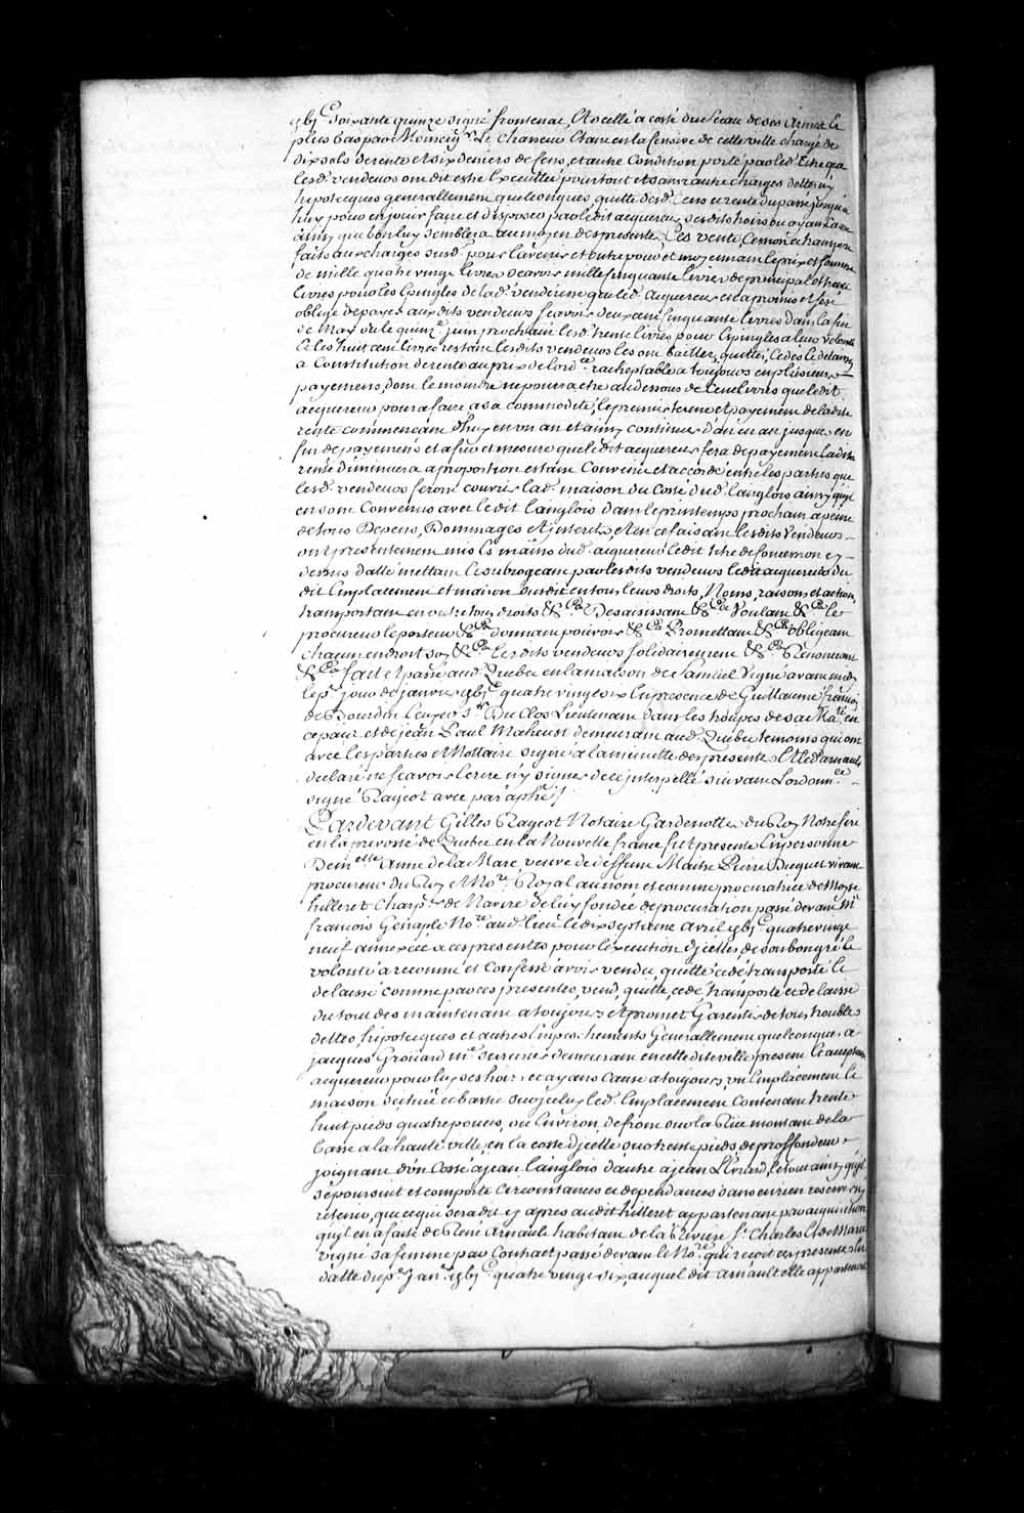 gbj^c soixante quinze signé frontenac, Et scellé a costé du sceau de ses armes Et
plus bas par Monseig^r Le Chasseur Estant en la Censive de cette ville chargé de
dix sols de rente et six deniers de Cens, et autre Condition porté par led. titre que
lesd. vendeurs ont dit estre Executtée pour tout et sans autre charges debtes ny
hipotecques generallement quelconques quitte desd. Cens et rente du passé jusqu'a
huy pour en jouir faire et disposer par ledit acquereur ses dits hoirs ou ayans Cause
ainsy que bon luy semblera au moyen des presentes, Ces vente, Cession et transport
faits aux charges susd. pour l'avenir et outre pour et moyennant le prix et somme
de mille quatre vingt livres scavoir mille cinquante livres de principal et trente
livres pour les Epingles de lad. venderesse que led. acquereur en a promis et s'est
obligé de payer aux dits vendeurs scavoir deux cent cinquante livres dans la fin
de May ou le quinz^e juin prochain lesd. trente livres pour Epingles a leur volonté
Et les huit cent livres restant lesdits vendeurs les ont baillez, quittés, cédés Et delaissez
a Constitution de rente au prix de l'ord^ce racheptable a toujours en plusieurs
payemens, dont le moindre ne poura etre au dessous de Cent livres que ledit
acquereur poura faire a sa commodité, le premier terme et payement de ladite
rente commencant d'huy en un an et ainsy continuer d'an en an jusques en
fin de payemens et a fur et mesure que ledit acquereur fera de payement ladite
rente diminuera a proportion estant Convenu et accordé entre les parties que
lesd. vendeurs feront couvrir lad. maison du Costé dud. langlois ainsy qu'ils
en sont Convenus avec le dit Langlois dans le printemps prochain a peine
de tous Depens, Dommages et Interets, et en ce faisant lesdits Vendeurs
ont presentement mis Es mains dud. acquereur ledit titre de concession cy
dessus datté mettant Et subrogeant par lesdits vendeurs ledit acquereur du
dit Emplacement et maison susdit en tous leurs droits, Noms, raisons et actions,
transportant en outre tous droits &^ca Desaisissant &^ca Voulant &^ca le
procureur le porteur &^ca donnant pouvoir &^ca Promettant &^ca obligeant
chacun endroit soy &^ca Lesdits vendeurs solidairement &^ca Renoncant
&^ca fait et passé aud. Quebec en la maison de Samuel Vigné avant midy
le p^r jour de janvier gbj^c quatre vingt six En presence de Guillaume francois
de Bourdin Ecuyer S^r Du Clos Lieutenant dans les troupes de sa Ma^té en
ce pais et de jean Paul Maheust demeurant aud. Quebec temoins qui ont
avec les parties et Nottaire signé a la minutte des presentes Et led. arnault
declaré ne scavoir Ecrire n'y signer de ce interpellé suivant Lordonn^ce
signé Rageot avec paraphe /
Pardevant Gilles Rageot Notaire Gardenotte du Roy Notre sire
en la prevosté de Quebec en la Nouvelle france fut presente En personne
Dem^elle anne de la Mare veuve de deffunt Maitre Pierre Duquet vivant
procureur du Roy et No^re Royal au nom et comme procuratrice de Moyse
hilleret Charp^er de Navire de luy fondée de procuration passé devant M^e
francois Genaple No^re aud. lieu le dix septieme avril gbj^c quatre vingt
neuf annexée a ces presentes pour l'execution d'jcelles, de son bon gré Et
volonté a reconnu et Confessé avoir vendu, quitté cedé transporté Et
delaissé comme par ces presentes, vend, quitte, cede transporte et delaisse
du tout des maintenant a toujours et promet Garentir de tous troubles
debtes hipotecques et autres Empeschements Generallement quelconques a
jacques Groüard m^e serrurier demeurant en cette dite ville present Et acceptant
acquereur pour luy ses hoirs et ayans Cause a toujours, un Emplacement Et
maison scitué et bastie sur jceluy led. Emplacement Contenant trente
huit pieds quatre pouces, ou Environ, de front sur la Rüe montant de la
basse a la haute ville, en la coste d'jcelle sur trente pieds de proffondeur
joignant d'un Costé a jean Langlois d'autre a jean L'Evrard, Le tout ainsy qu'jl
se poursuit et comporte Circonstances et dependances sans en rien reserver ny
retenir, que ce qui sera dit cy apres audit hilleret appartenant par acquisition
qu'jl en a faite de René Arnault habitant de la Riviere S^t Charles Et de Marie
Vigné sa femme par Contract passé devant le No^re qui recoit ces presentes En
datte du p^r Janv^er gbj^c quatre vingt six, auquel dit arnault elle appartenoit